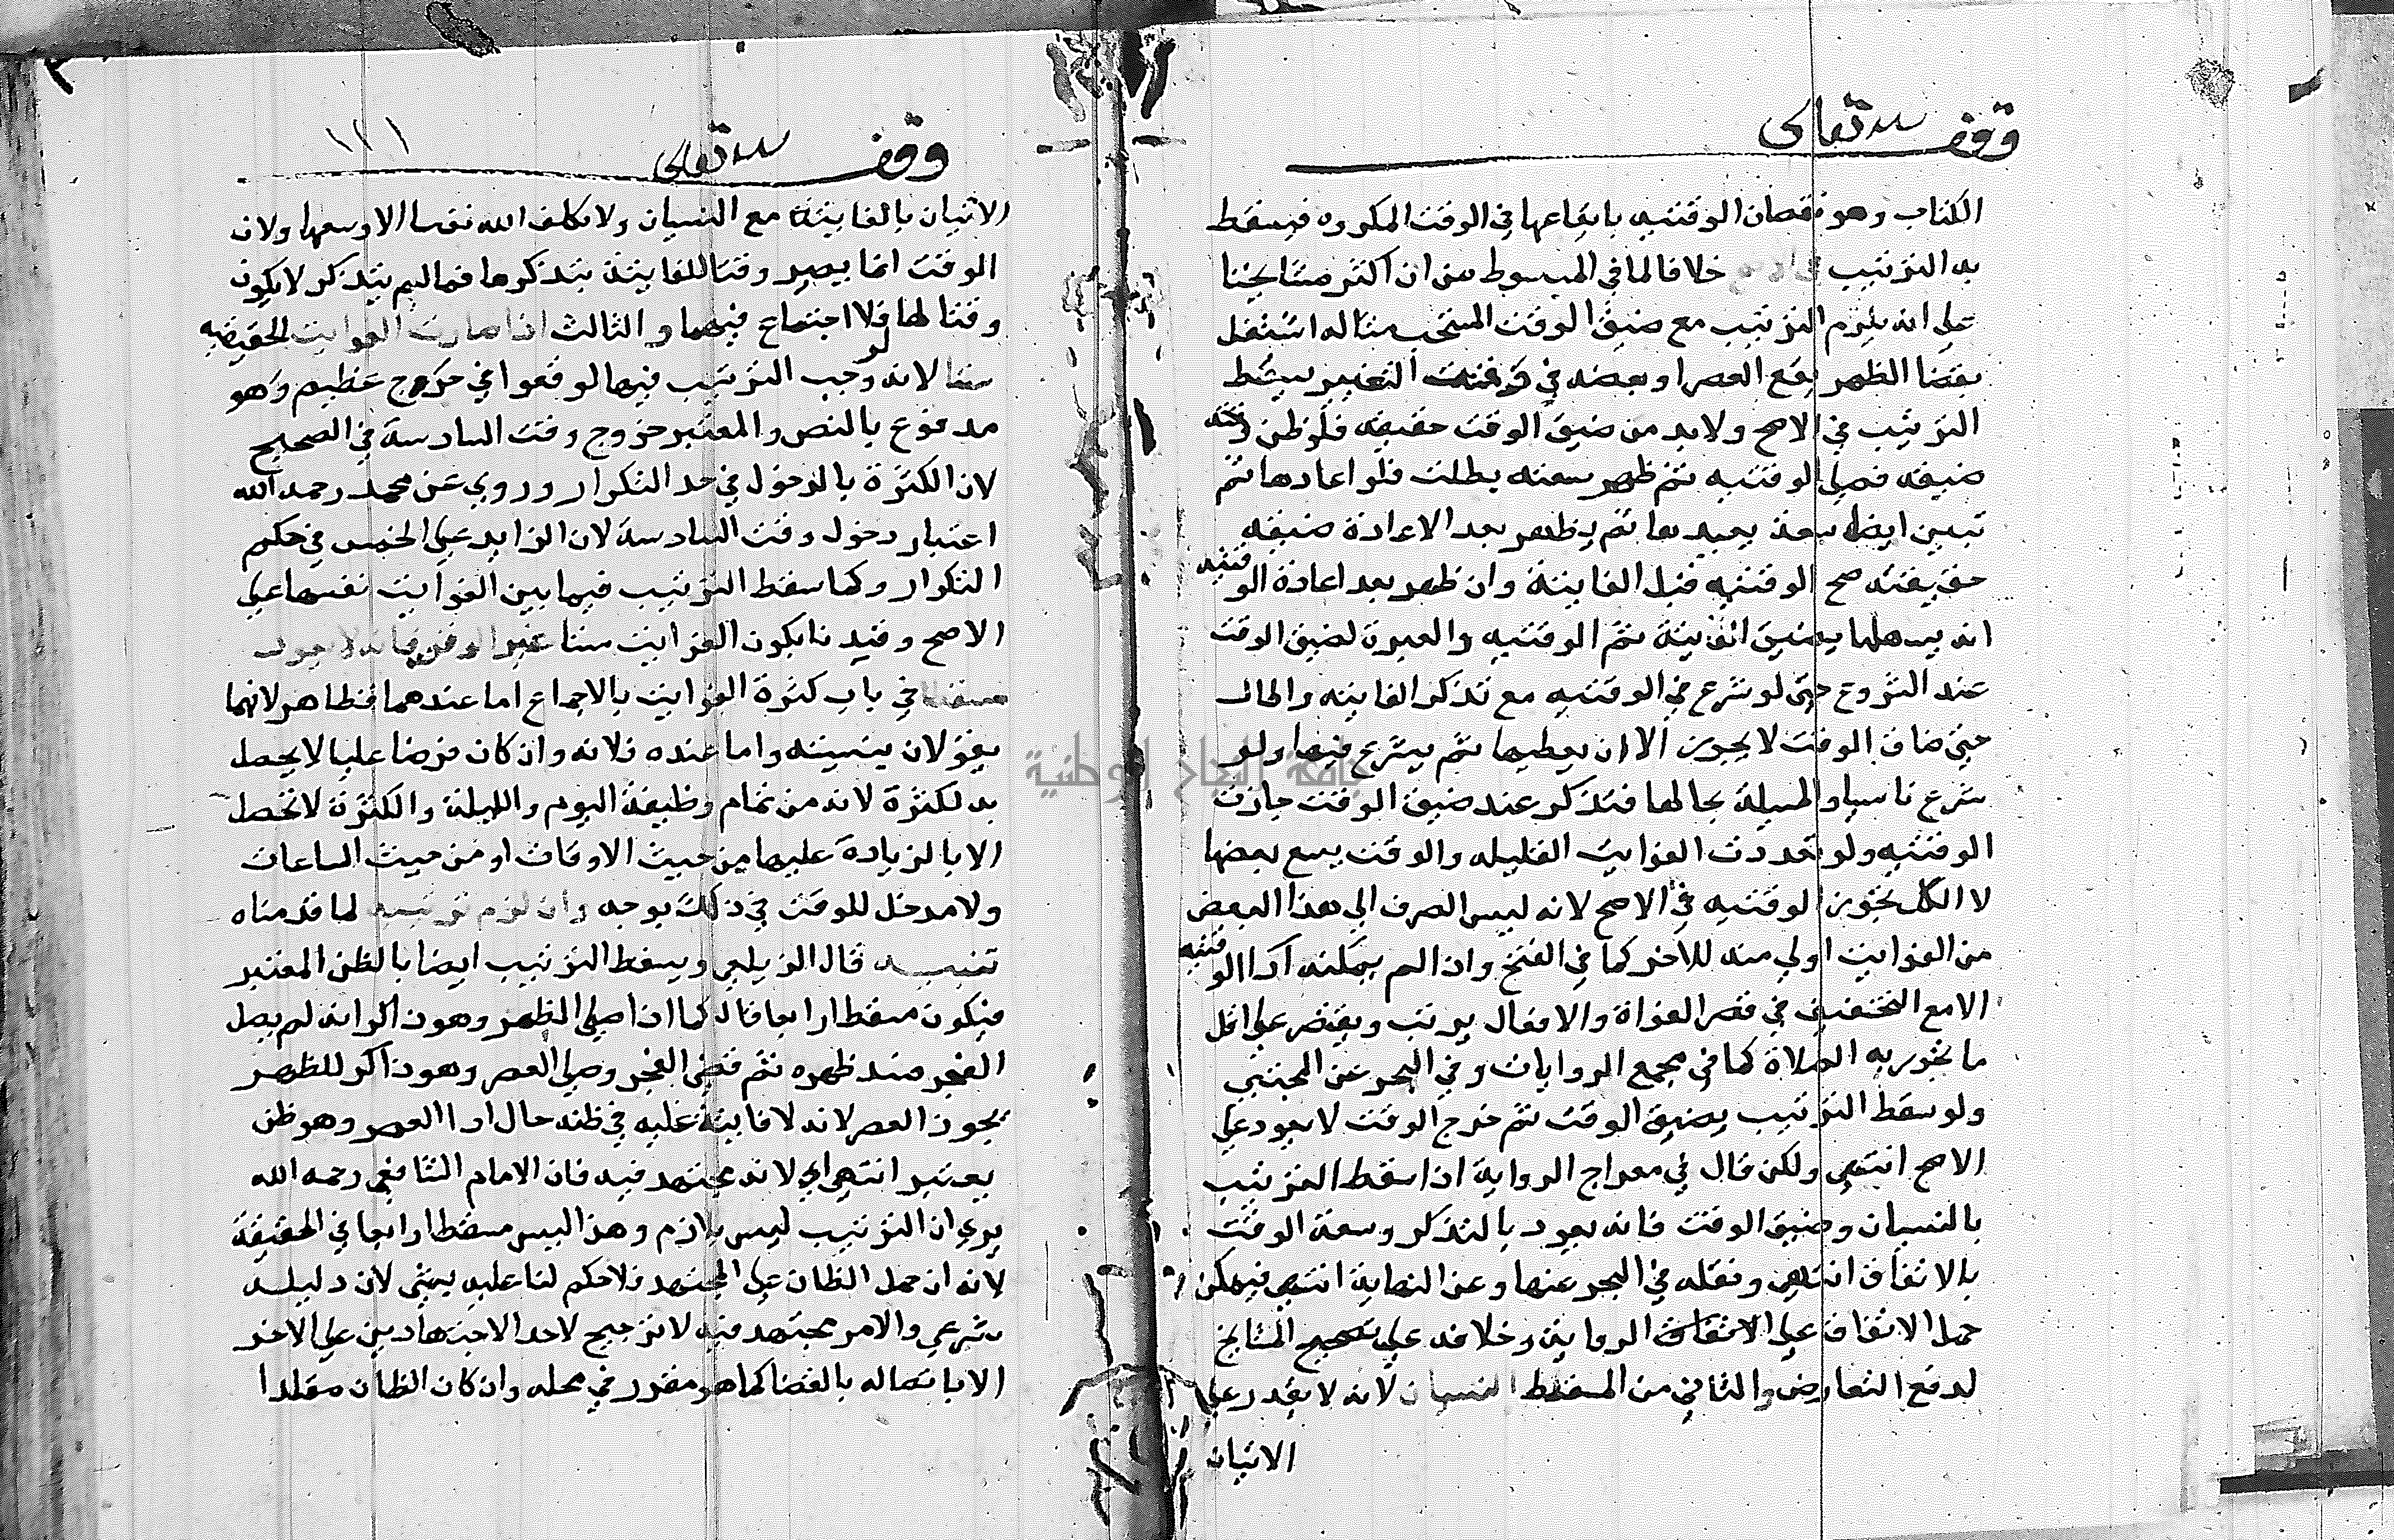 وقف لله تعالى
الكتاب وهو نقصان الوقتيه بايقاعها في الوقت المكروه فيسقط
به الترتيب خلافا لما في المبسوط من ان اكثر مشايخنا
على انه يلزم الترتيب مع ضيق الوقت المستحب مثاله اشتغل
بقضا الظهر يقع العصر او بعضه في وقت التغير يسقط
الترتيب في الاصح ولابد من ضيق الوقت حقيقه فلو ظن
ضيقه فصلى الوقتيه ثم ظهر سعته بطلت فلو اعادها ثم
تبين ايضا سعة يعيدها ثم يظهر بعد الاعادة ضيقه
حقيقته صح الوقتيه قبل الفايتة وان ظهر بعد اعادة الوقتيه
انه يسعهما يصلي الفايتة ثم الوقتيه والعبرة لضيق الوقت
عند الشروع حتى لو شرع في الوقتيه مع تذكر الفايته واطال
حتى ضاق الوقت لا يجوز الا ان يقطعها ثم يشرع فيها ولو
شرع ناسيا والمسيلة بحالها فتذكر عند ضيق الوقت جازت
الوقتيه ولو تعددت الفوايت القليله والوقت يسع بعضها
لا الكل تجوز الوقتيه في الاصح لانه ليس الصرف الى هذا البعض
من الفوايت اولى منه للاخر كما في الفتح واذا لم يمكنه ادا الوقتيه
الا مع التخفيف في قصر القراة والافعال يرتب ويقتصر على اقل
ما تجوز به الصلاة كما في مجمع الروايات وفي البحر عن المجتبى
ولو سقط الترتيب بضيق الوقت ثم خرج الوقت لا يعود على
الاصح انتهى ولكن قال في معراج الرواية اذا سقط الترتيب
بالنسيان وضيق الوقت فانه يعود بالتذكر وسعة الوقت
بالاتفاق انتهى ونقله في البحر عنها وعن النهاية انتهى فيمكن
حمل الاتفاق على الاتفاق الروايتين وخلافه على تصحيح المشايخ
لدفع التعارض والثاني من المسقط النسيان لانه لا يقدر على
الاتيان
وقف لله تعالى
١٢١
الاتيان بالفايتة مع النسيان ولا يكلف الله نفسا الا وسعها ولان
الوقت انما يصير وقتا للفايتة بتذكرها فما لم يتذكر لا يكون
وقتا لها فلا اجتماع فيهما والثالث اذا صارت الفوايت الحقيقيه
ستا لانه لو وجب الترتيب فيها لوقعوا في حرج عظيم وهو
مدفوع بالنص والمعتبر خروج وقت السادسة في الصحيح
لان الكثرة بالدخول في حد التكرار وروي عن محمد رحمه الله
اعتبار دخول وقت السادسة لان الزايد على الخمس في حكم
التكرار وكما سقط الترتيب فيما بين الفوايت نفسها على
الاصح وقيدنا بكون الفوايت ستا غير الوتر فانه لا يعود
مسقطا في باب كثرة الفوايت بالاجماع اما عندهما فظاهر لانهما
يقولان بسنيته واما عنده فلانه وان كان فرضا عليا لا يحصل
به لكثرة لانه من تمام وظيفة اليوم والليلة والكثرة لا تحصل
الا بالزيادة عليها من حيث الاوقات او من حيث الساعات
ولا مدخل للوقت في ذلك بوجه وان لزم ترتيبه لما قدمناه
تنبيه قال الزيلعي ويسقط الترتيب ايضا بالظن المعتبر
فيكون مسقطا رابعا قال كما اذا صلى الظهر وهو ذاكر انه لم يصل
الفجر فسد ظهره ثم قضى الفجر وصلى العصر وهو ذاكر للظهر
يجوز العصر لانه لا فايتة عليه في ظنه حال ادا العصر وهو ظن
يعتبر انتهى اي لانه مجتهد فيه فان الامام الشافعي رحمه الله
يرى ان الترتيب ليس بلازم وهذا ليس مسقطا رابعا في الحقيقة
لانه ان حمل الظان على المجتهد فلا حكم لنا عليه بشي لان دليله
شرعي والامر مجتهد فيه لا ترجيح لاحد الاجتهادين على الاخر
الا باتصاله بالقضا كما هو مقرر في محله وان كان الظان مقلدا
جامعة النجاح الوطنية